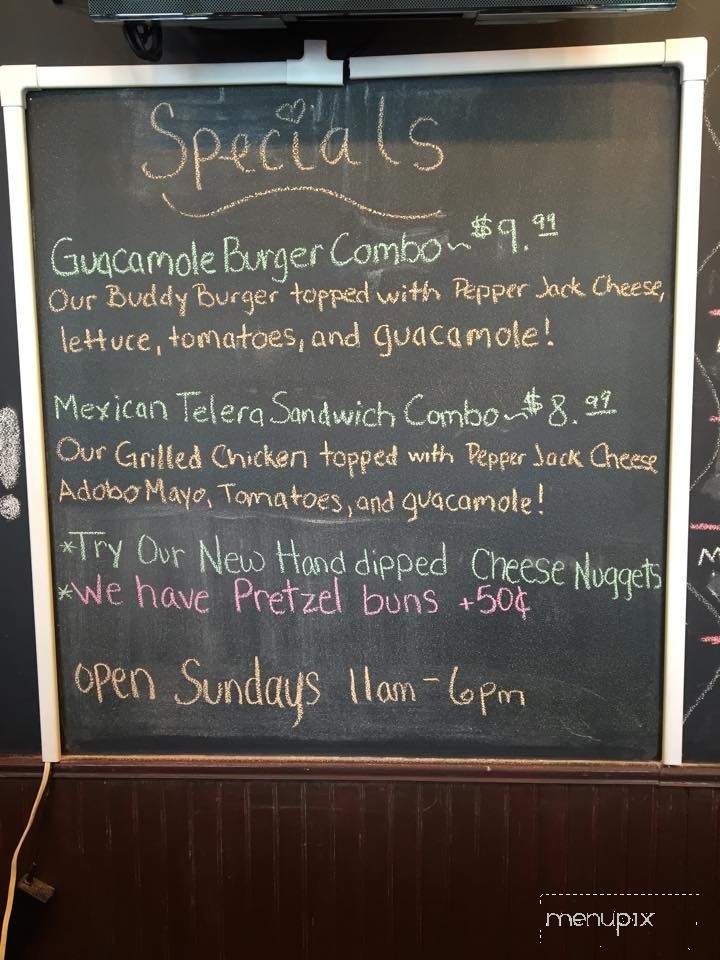 Specials
Guacamole Burger Combo ~ $9.99
Our Buddy Burger topped with Pepper Jack Cheese,
lettuce, tomatoes, and guacamole!
Mexican Telera Sandwich Combo ~ $8.99
Our Grilled Chicken topped with Pepper Jack Cheese
Adobo Mayo, Tomatoes, and guacamole!
*Try Our New Hand dipped Cheese Nuggets
*We have Pretzel buns +50¢
open Sundays 11am - 6pm
menupix